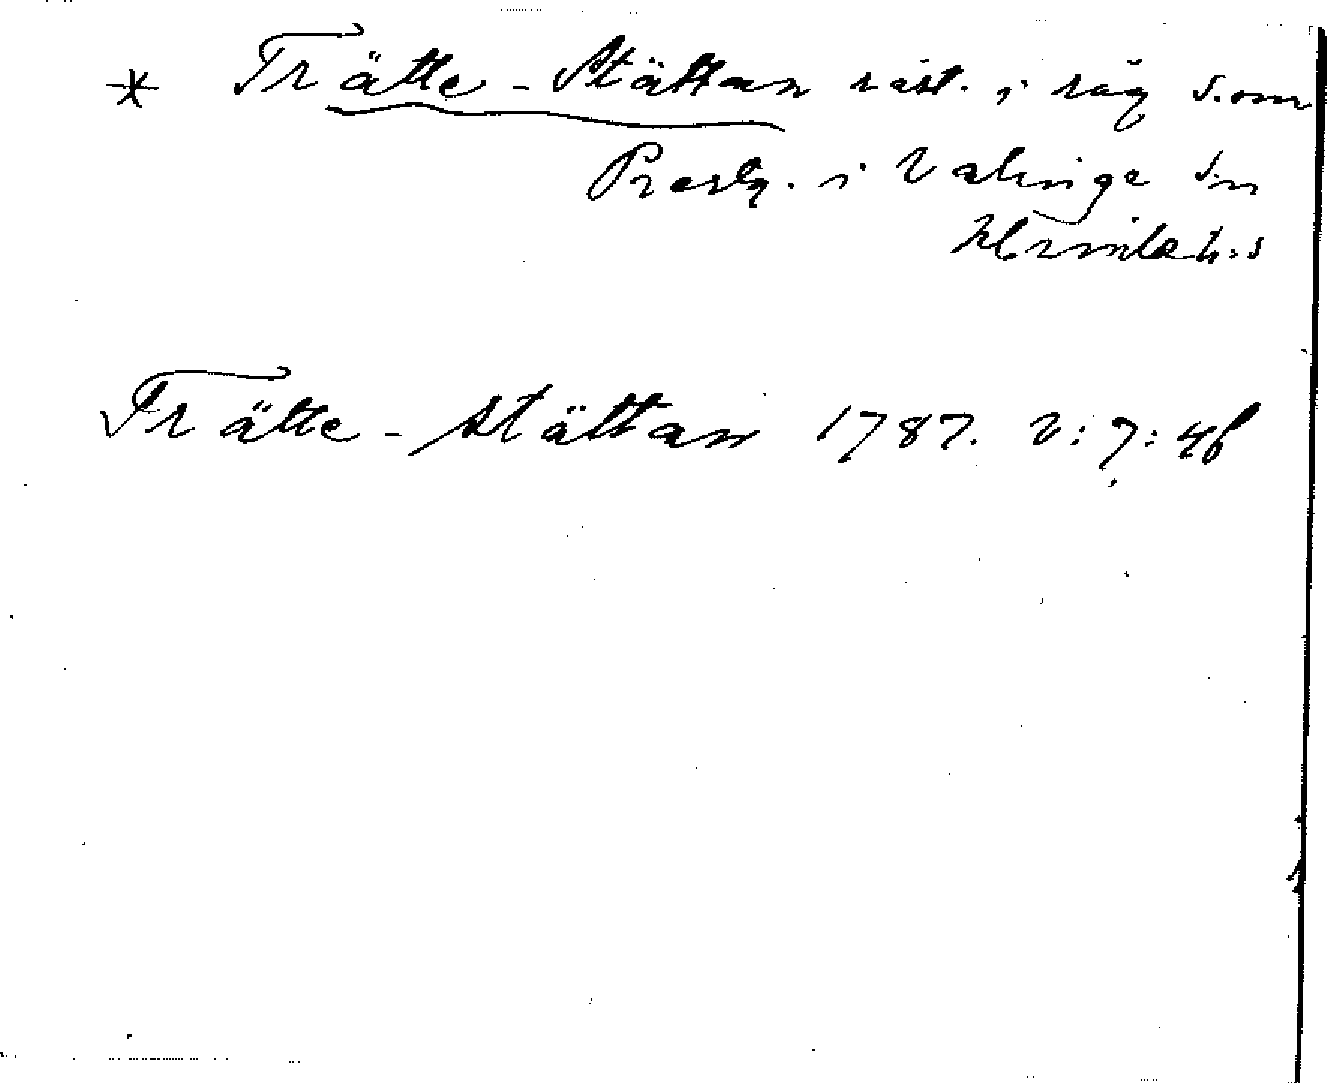 * Trätte-Stättan råst. i råg s.om
Prestg. i Valinge sn
Himle h:s
Trätte-stättan 1787. V:7:46